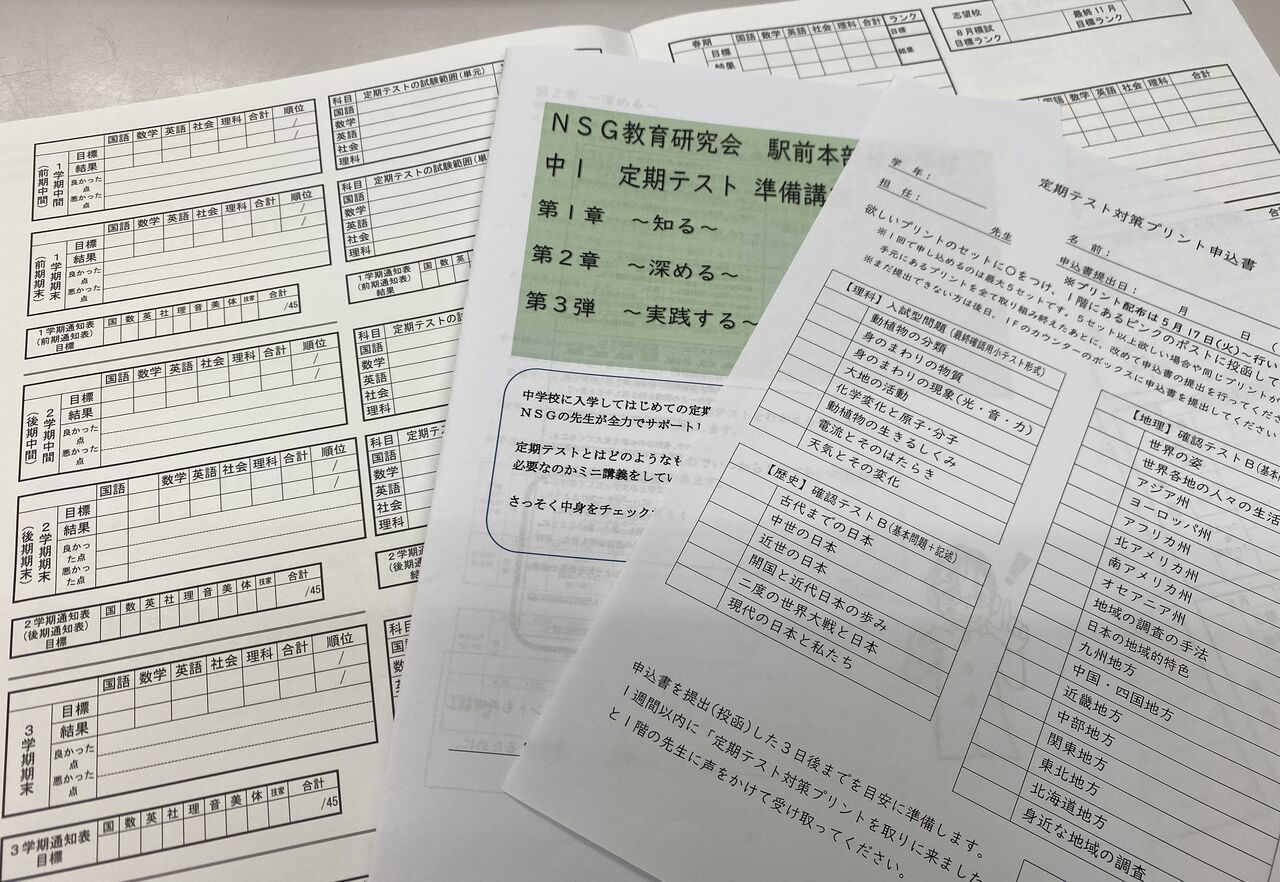 国語 数学 英語 社会 理科 合計 順位
1学期中間
(前期中間)
目標
結果
/
/
良かった点
悪かった点
国語 数学 英語 社会 理科 合計 順位
1学期期末
(前期期末)
目標
結果
/
/
良かった点
悪かった点
1学期通知表
(前期通知表)
目標
国 数 英 社 理 音 美 体 技家 合計
/45
国語 数学 英語 社会 理科 合計 順位
2学期中間
(後期中間)
目標
結果
/
/
良かった点
悪かった点
国語 数学 英語 社会 理科 合計 順位
2学期期末
(後期期末)
目標
結果
/
/
良かった点
悪かった点
2学期通知表
(後期通知表)
目標
国 数 英 社 理 音 美 体 技家 合計
/45
国語 数学 英語 社会 理科 合計 順位
3学期期末
目標
結果
/
/
良かった点
悪かった点
3学期通知表
目標
国 数 英 社 理 音 美 体 技家 合計
/45
科目 定期テストの試験範囲(単元)
国語
数学
英語
社会
理科
科目 定期テストの試験範囲(単
国語
数学
英語
社会
理科
1学期通知表
(前期通知表)
結果
国 数 英
科目 定期テストの試
国語
数学
英語
社会
理科
科目 定期テ
国語
数学
英語
社会
理科
2学期
(後期
結
科目
国語
数学
英語
社会
理科
春期 国語 数学 英語 社会 理科 合計 ランク
目標
目標
結果
結果
志望校
8月模試
目標ランク
最終11月
目標ランク
国語 数学 英語 社会 理科 合計
NSG教育研究会 駅前本部
中1 定期テスト 準備講
第1章 ~知る~
第2章 ~深める~
第3弾 ~実践する~
中学校に入学してはじめての定期
NSGの先生が全力でサポート
定期テストとはどのような
必要なのかミニ講義をしてい
さっそく中身をチェック
定期テスト対策プリント申込書
学 年:
担 任: 先生
名 前:
申込書提出日: 月 日 (
欲しいプリントのセットに○をつけ、1階にあるピンクのポストに投函して
※プリント配布は5月17日(火)~行い
※1回で申し込めるのは最大5セットです。5セット以上欲しい場合や同じプリントが
手元にあるプリントを全て取り組み終えたあとに、改めて申込書の提出を行ってくださ
※まだ提出できない方は後日、1Fのカウンターのボックスに申込書を提出してください
【理科】入試型問題(最終確認用小テスト形式)
動植物の分類
身のまわりの物質
身のまわりの現象(光・音・力)
大地の活動
化学変化と原子・分子
動植物の生きるしくみ
電流とそのはたらき
天気とその変化
【歴史】確認テストB(基本問題+記述)
古代までの日本
中世の日本
近世の日本
開国と近代日本の歩み
二度の世界大戦と日本
現代の日本と私たち
【地理】確認テストB(基本
世界の姿
世界各地の人々の生活
アジア州
ヨーロッパ州
アフリカ州
北アメリカ州
南アメリカ州
オセアニア州
地域の調査の手法
日本の地域的特色
九州地方
中国・四国地方
近畿地方
中部地方
関東地方
東北地方
北海道地方
身近な地域の調査
申込書を提出(投函)した3日後までを目安に準備します。
1週間以内に「定期テスト対策プリントを取りに来ました
と1階の先生に声をかけて受け取ってください。